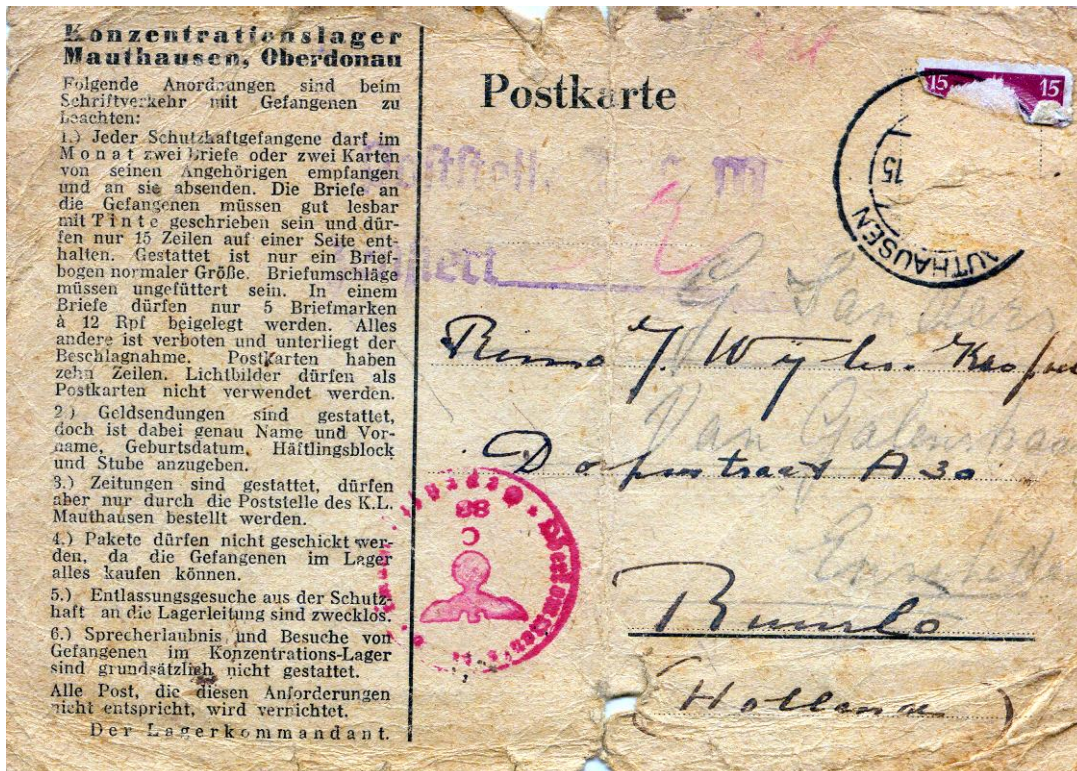 Konzentrationslager
Mauthausen, Oberdonau
Folgende Anordnungen sind beim
Schriftverkehr mit Gefangenen zu
beachten:
1.) Jeder Schutzhaftgefangene darf im
Monat zwei Briefe oder zwei Karten
von seinen Angehörigen empfangen
und an sie absenden. Die Briefe an
die Gefangenen müssen gut lesbar
mit Tinte geschrieben sein und dür-
fen nur 15 Zeilen auf einer Seite ent-
halten. Gestattet ist nur ein Brief-
bogen normaler Größe. Briefumschläge
müssen ungefüttert sein. In einem
Briefe dürfen nur 5 Briefmarken
à 12 Rpf beigelegt werden. Alles
andere ist verboten und unterliegt der
Beschlagnahme. Postkarten haben
zehn Zeilen. Lichtbilder dürfen als
Postkarten nicht verwendet werden.
2.) Geldsendungen sind gestattet,
doch ist dabei genau Name und Vor-
name, Geburtsdatum, Häftlingsblock
und Stube anzugeben.
3.) Zeitungen sind gestattet, dürfen
aber nur durch die Poststelle des K.L.
Mauthausen bestellt werden.
4.) Pakete dürfen nicht geschickt wer-
den, da die Gefangenen im Lager
alles kaufen können.
5.) Entlassungsgesuche aus der Schutz-
haft an die Lagerleitung sind zwecklos.
6.) Sprecherlaubnis und Besuche von
Gefangenen im Konzentrations-Lager
sind grundsätzlich nicht gestattet.
Alle Post, die diesen Anforderungen
nicht entspricht, wird vernichtet.
Der Lagerkommandant.
Postkarte
15 15
15
AUTHAUSEN
A 30
(Holland)